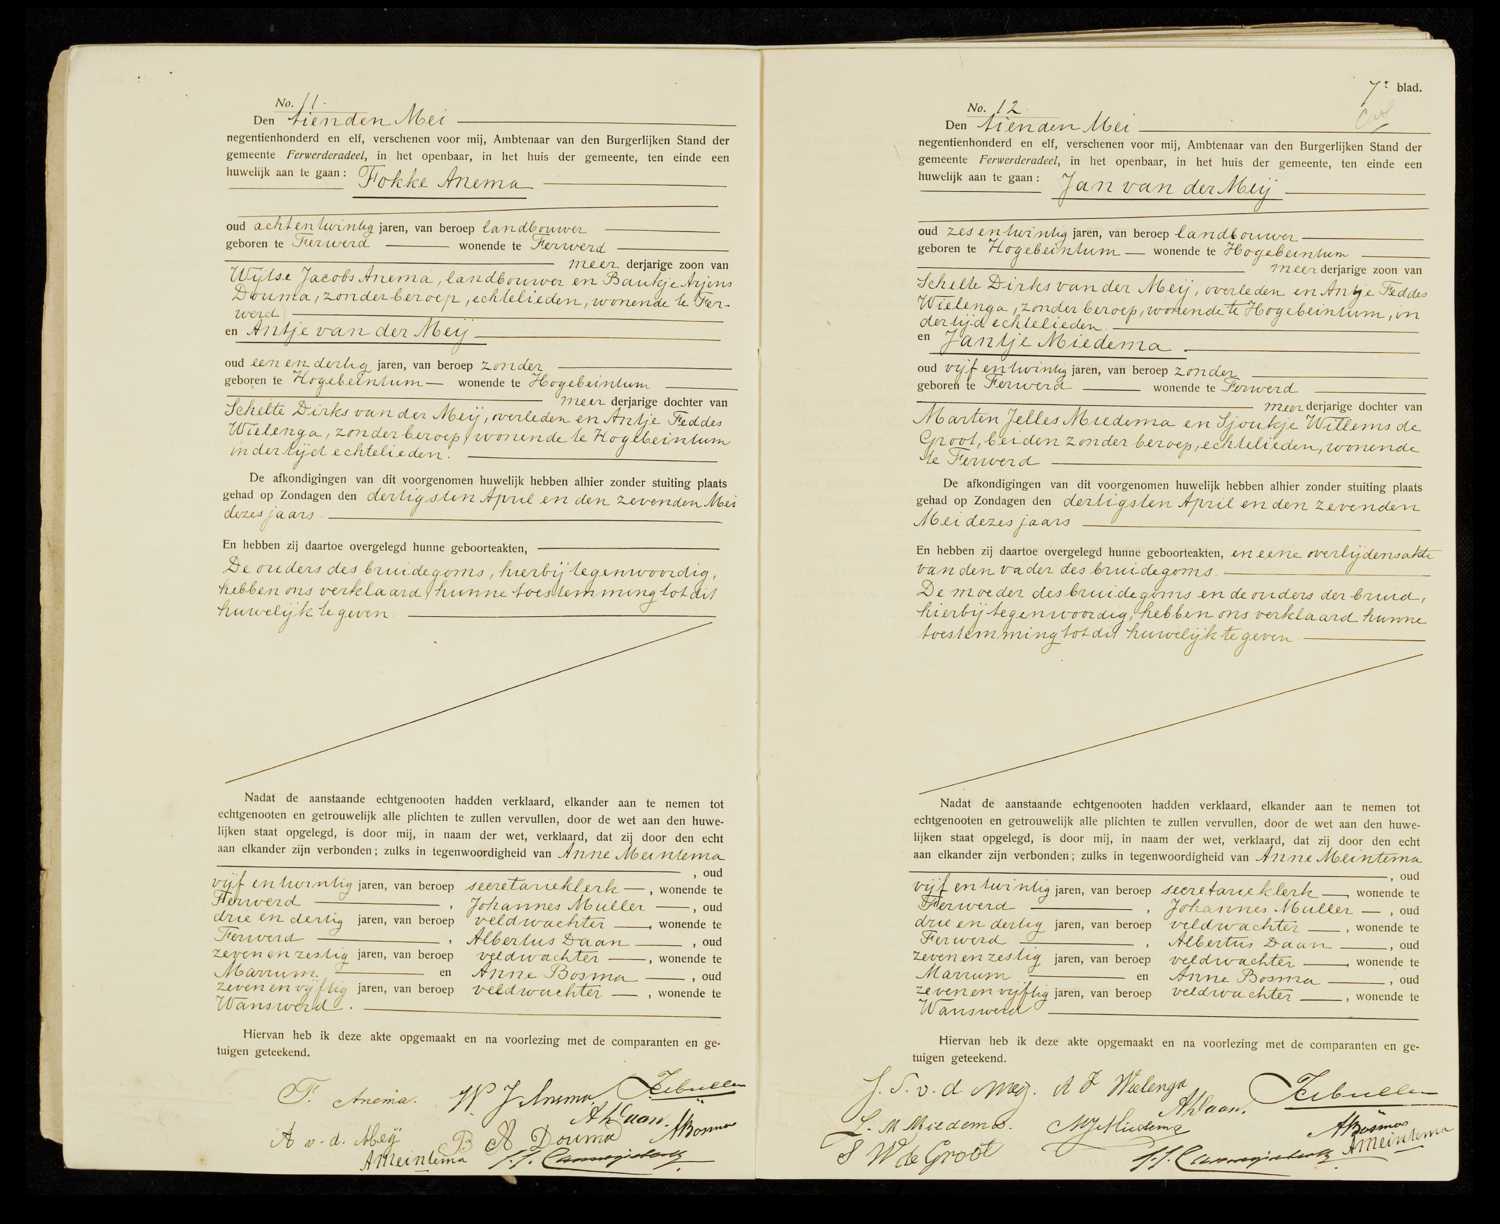 No. 11.
Den tienden Mei
negentienhonderd en elf, verschenen voor mij, Ambtenaar van den Burgerlijken Stand der
gemeente Ferwerderadeel, in het openbaar, in het huis der gemeente, ten einde een
huwelijk aan te gaan: Fokke Anema
oud achtentwintig jaren, van beroep landbouwer
geboren te Ferwerd wonende te Ferwerd
meer derjarige zoon van
Wijtse Jacobs Anema, landbouwer en Baukje Arjens
Douma, zonder beroep, echtelieden, wonende te Fer-
werd
en Antje van der Meij
oud een en dertig jaren, van beroep zonder
geboren te Hogebeintum wonende te Hogebeintum
meer derjarige dochter van
Schelte Dirks van der Meij, overleden en Antje Feddes
Wielenga, zonder beroep, wonende te Hogebeintum
in der tijd echtelieden.
De afkondigingen van dit voorgenomen huwelijk hebben alhier zonder stuiting plaats
gehad op Zondagen den dertigsten April en den zevenden Mei
dezes jaars
En hebben zij daartoe overgelegd hunne geboorteakten,
De ouders des bruidegoms, hierbij tegenwoordig,
hebben ons verklaard hunne toestemming tot dit
huwelijk te geven
Nadat de aanstaande echtgenooten hadden verklaard, elkander aan te nemen tot
echtgenooten en getrouwelijk alle plichten te zullen vervullen, door de wet aan den huwe-
lijken staat opgelegd, is door mij, in naam der wet, verklaard, dat zij door den echt
aan elkander zijn verbonden; zulks in tegenwoordigheid van Anne Meintema
, oud
vijf en twintig jaren, van beroep secretarieklerk, wonende te
Ferwerd, Johannes Muller, oud
drie en dertig jaren, van beroep veldwachter, wonende te
Ferwerd, Albertus Daan, oud
zeven en zestig jaren, van beroep veldwachter, wonende te
Marrum en Anne Bosma, oud
zeven en vijftig jaren, van beroep veldwachter, wonende te
Wanswerd.
Hiervan heb ik deze akte opgemaakt en na voorlezing met de comparanten en ge-
tuigen geteekend.
F. Anema. W J Anema
A Daan.
A v. d. Meij B A Douma A Bosma
A Meintema
7e blad.
No. 12
Den tienden Mei
negentienhonderd en elf, verschenen voor mij, Ambtenaar van den Burgerlijken Stand der
gemeente Ferwerderadeel, in het openbaar, in het huis der gemeente, ten einde een
huwelijk aan te gaan: Jan van der Meij
oud zes en twintig jaren, van beroep landbouwer
geboren te Hogebeintum wonende te Hogebeintum
meer derjarige zoon van
Schelte Dirks van der Meij, overleden en Antje Feddes
Wielenga, zonder beroep, wonende te Hogebeintum, in
der tijd echtelieden.
en Jantje Miedema
oud vijf en twintig jaren, van beroep zonder
geboren te Ferwerd wonende te Ferwerd
meer derjarige dochter van
Marten Jelles Miedema en Sjoukje Willems de
Groot, beiden zonder beroep, echtelieden, wonende
te Ferwerd
De afkondigingen van dit voorgenomen huwelijk hebben alhier zonder stuiting plaats
gehad op Zondagen den dertigsten April en den zevenden
Mei dezes jaars
En hebben zij daartoe overgelegd hunne geboorteakten, en eene overlijdensakte
van den vader des bruidegoms.
De moeder des bruidegoms en de ouders der bruid,
hierbij tegenwoordig, hebben ons verklaard hunne
toestemming tot dit huwelijk te geven
Nadat de aanstaande echtgenooten hadden verklaard, elkander aan te nemen tot
echtgenooten en getrouwelijk alle plichten te zullen vervullen, door de wet aan den huwe-
lijken staat opgelegd, is door mij, in naam der wet, verklaard, dat zij door den echt
aan elkander zijn verbonden; zulks in tegenwoordigheid van Anne Meintema
, oud
vijf en twintig jaren, van beroep secretarieklerk, wonende te
Ferwerd, Johannes Muller, oud
drie en dertig jaren, van beroep veldwachter, wonende te
Ferwerd, Albertus Daan, oud
zeven en zestig jaren, van beroep veldwachter, wonende te
Marrum en Anne Bosma, oud
zeven en vijftig jaren, van beroep veldwachter, wonende te
Wanswerd
Hiervan heb ik deze akte opgemaakt en na voorlezing met de comparanten en ge-
tuigen geteekend.
J. S. v. d. Meij. A F Wielenga
A Daan.
J. M Miedema. M J Miedema A Bosma
S W de Groot A Meintema